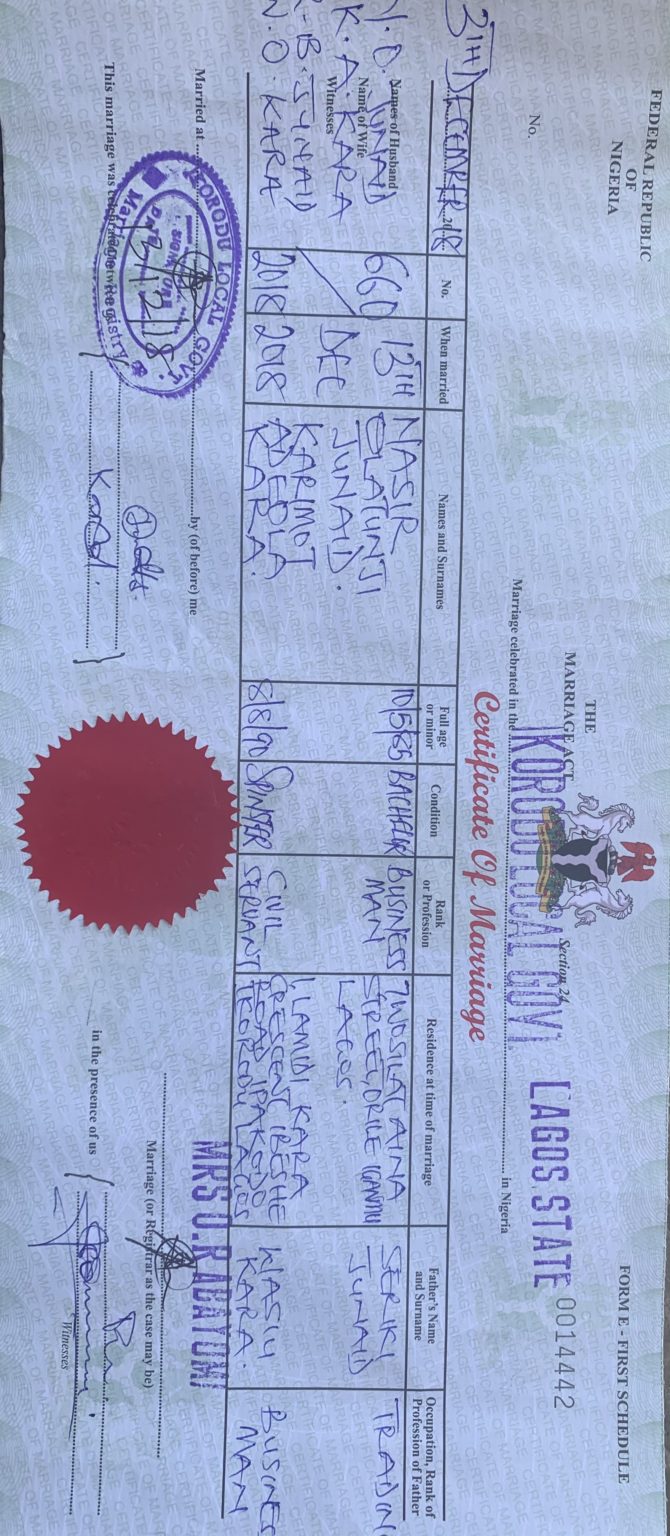 FEDERAL REPUBLIC
OF
NIGERIA
THE
MARRIAGE ACT
Section 24
FORM E - FIRST SCHEDULE
No.
IKORODU LOCAL GOVT. LAGOS STATE 0014442
Marriage celebrated in the in Nigeria
Certificate Of Marriage
DECEMBER 2018
Names of Husband
N. O. JUNAID
Name of Wife
K. A. KARA
Witnesses
B. JUNAID
W. O. KARA
No. When married Names and Surnames Full age or minor Condition Rank or Profession Residence at time of marriage Father's Name and Surname Occupation, Rank of Profession of Father
660 / 2018
13TH DEC 2018
NASIR
OLATUNJI
JUNAID.
10/5/85 BACHELOR BUSINESS MAN
STREET, ORILE IGANMU
LAGOS.
SERIKI
JUNAID
TRADIN
KARIMOT
ADEOLA
KARA.
8/8/90 SPINSTER CIVIL SERVANT
1, LAMIDI KARA
CRESCENT IBESHE
ROAD IPAKODO
IKORODU LAGOS
WASIU
KARA.
BUSINES
MAN
Married at by (of before) me
MRS O.R ADAYOMI
Marriage (or Registrar as the case may be)
IKORODU LOCAL GOVT.
SIGN
DATE
13/12/18
Marriage Registry
This marriage was celebrated between us
Kara.
in the presence of us
Witnesses